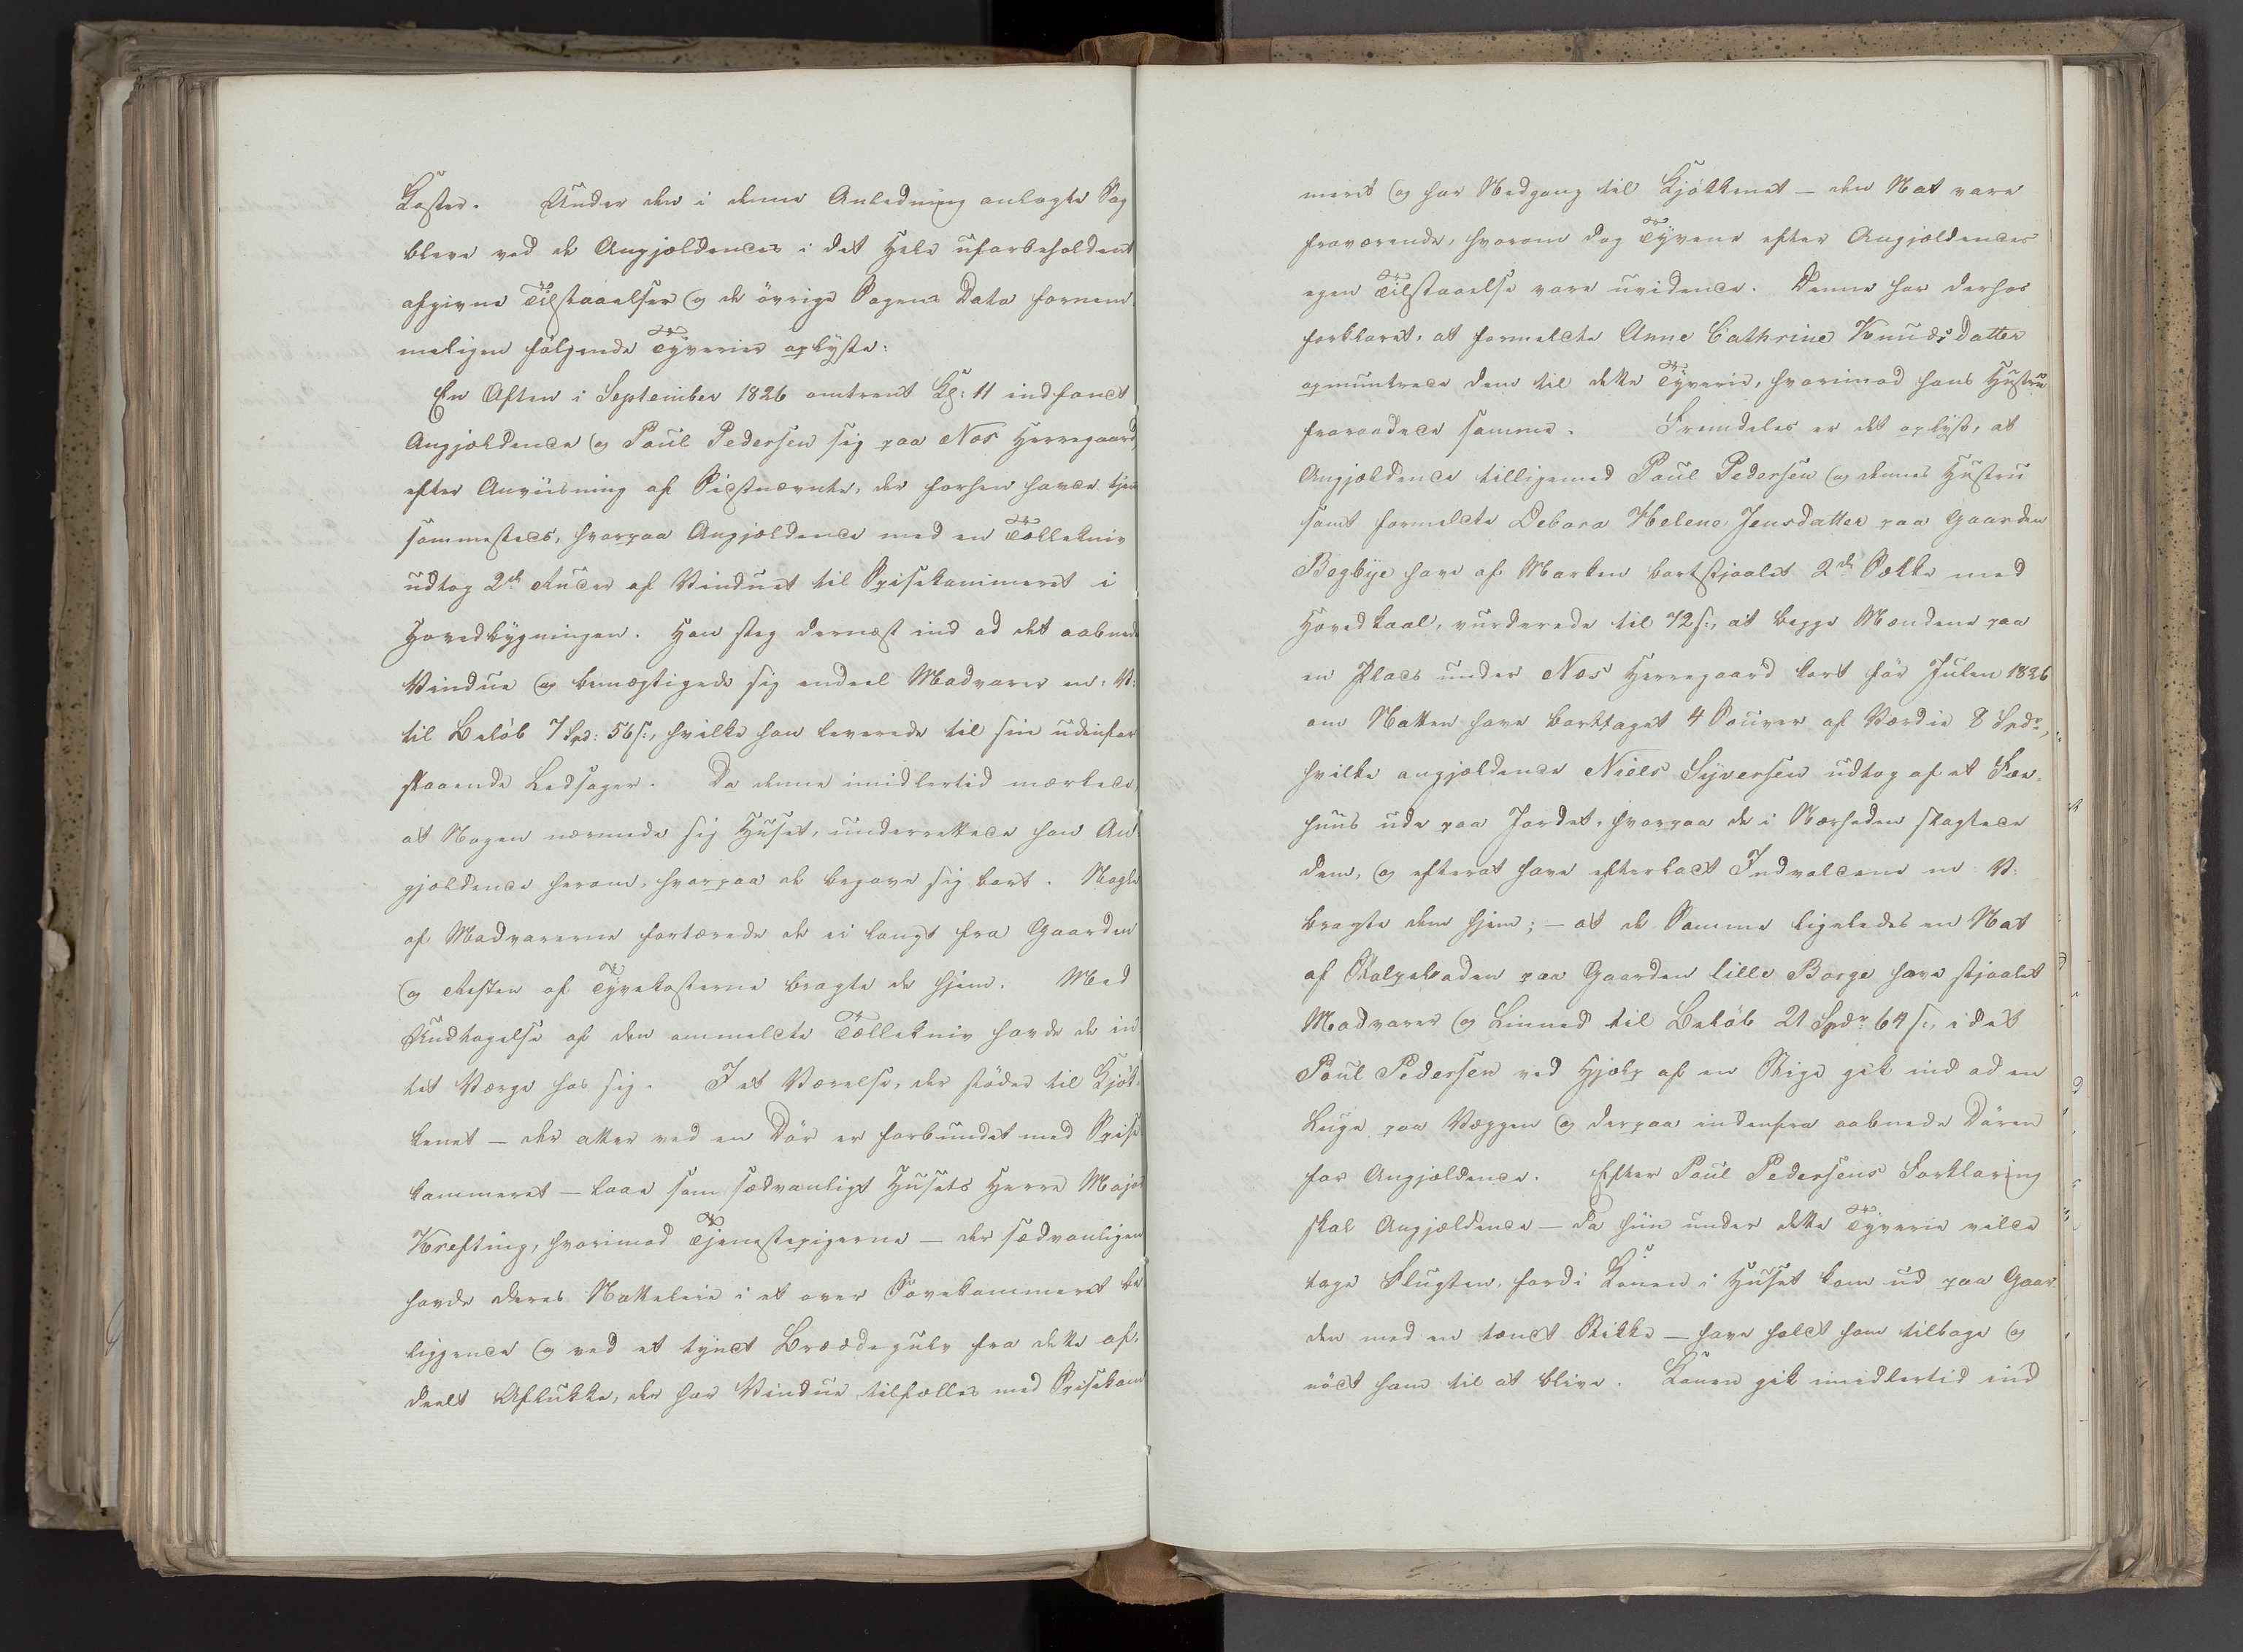 Koster. Under den i denne Anledning anlagte Sag
bleve ved de Angjældendes i det Hele uforbeholdent
afgivne Tilstaaelser og de øvrige Sagens Data fornem
meligen følgende Tyverier oplyste:
En Aften i September 1826 omtrent Kl: 11 indfandt
Angjældende og Poul Pedersen sig paa Næs Herregaard,
efter Anviisning af Sidstnævnte, der forhen havde tjent
sammesteds, hvorpaa Angjældende med en Tollekniv
udtog 2de Ruder af Vinduet til Spisekammeret i
Hovedbygningen. Han steg dernæst ind ad det aabnede
Vindue og bemægtigede sig endeel Madvarer m: V:
til Beløb 7 Spd: 56 s:, hvilke han leverede til sin udenfor
staaende Ledsager. Da denne imidlertid mærkede,
at Nogen nærmede sig Huset, underrettede han An
gjældende herom, hvorpaa de begave sig bort. Nogle
af Madvarerne fortærede de ei langt fra Gaarden
og Resten af Tyvekosterne bragte de hjem. Med
Undtagelse af den ommeldte Tollekniv havde de in
tet Værge hos sig. I et Værelse, der støder til Kjøk
kenet – der atter ved en Dør er forbundet med Spise
kammeret – laae som sædvanligt Husets Herre Major
Krefting, hvorimod Tjenestepigerne – der sædvanligen
havde deres Natteleie i et over Sovekammeret be
liggende og ved et tyndt Bræddegulv fra dette af-
deelt Aflukke, der har Vindue tilfælles med Spisekam
meret og har Nedgang til Kjøkkenet – den Nat vare
fraværende, hvorom dog Tyvene efter Angjældendes
egen Tilstaaelse vare uvidende. Denne har derhos
forklaret, at formeldte Anne Cathrine Knudsdatter
opmuntrede dem til dette Tyverie, hvorimod hans Hustru
fraraadede samme. Fremdeles er det oplyst, at
Angjældende tilligemed Poul Pedersen og dennes Hustru
samt formeldte Debora Helene Jensdatter paa Gaarden
Bogbye have af Marken bortstjaalet 2de Sække med
Hovedkaal, vurderede til 72 s:, at begge Mændene paa
en Plads under Næs Herregaard kort før Julen 1826
om Natten have borttaget 4 Souver af Værdie 8 Spdr,
hvilke angjældende Niels Syversen udtog af et Fæe-
huus ude paa Jordet, hvorpaa de i Nærheden slagtede
dem, og efterat have efterladt Indvoldene m: V:
bragte dem hjem; – at de Samme ligeledes en Nat
af Stolpeboden paa Gaarden lille Borge have stjaalet
Madvarer og Linned til Beløb 21 Spdr 64 s:, idet
Poul Pedersen ved Hjelp af en Stige gik ind ad en
Luge paa Væggen og derpaa indenfra aabnede Døren
for Angjældende. Efter Poul Pedersens Forklaring
skal Angjældende – da hun under dette Tyverie vilde
tage Flugten, fordi Konen i Huset kom ud paa Gaar
den med en tændt Stikke – have holdt ham tilbage og
nødt ham til at blive. Konen gik imidlertid ind